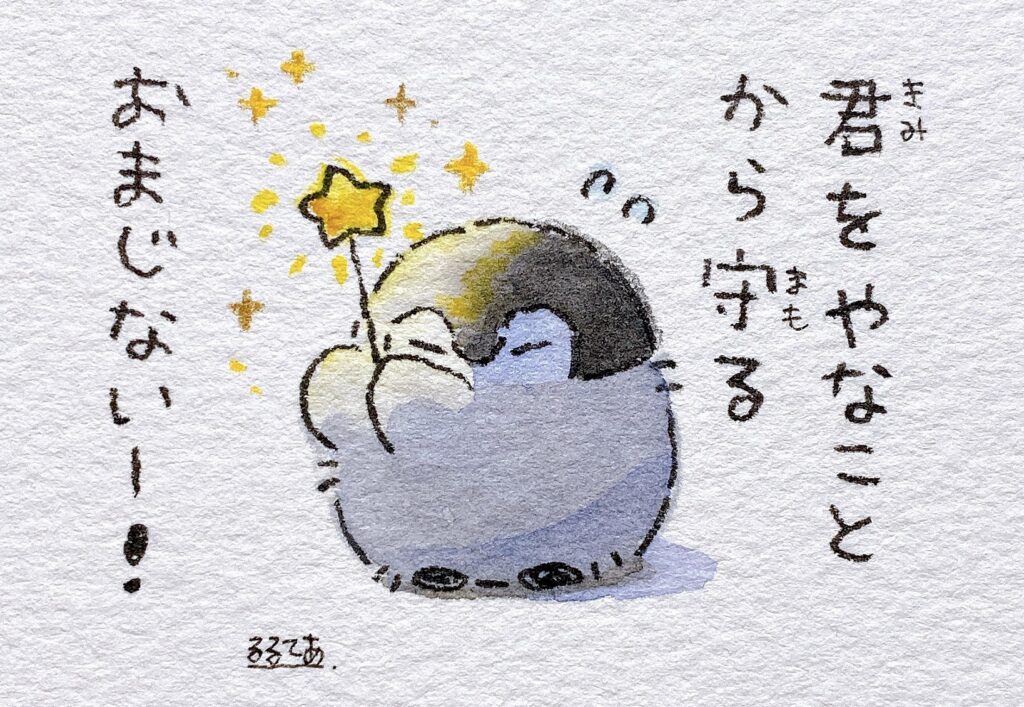 君をやなこと
きみ
から守る
まも
おまじないー!
るるてあ.